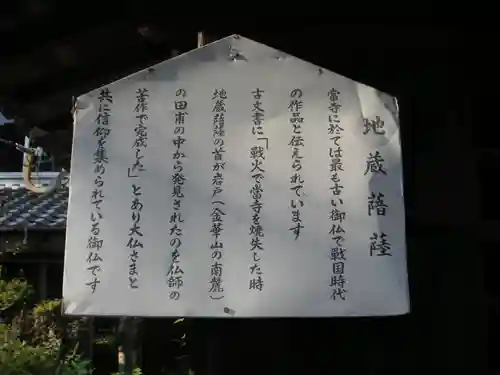 地蔵菩薩
當寺に於ては最も古い御仏で戦国時代
の作品と伝えられています
古文書に「戦火で當寺を焼失した時
地蔵菩薩の首が岩戸（金華山の南麓）
の田甫の中から発見されたのを仏師の
苦作で完成した」とあり大仏さまと
共に信仰を集められている御仏です